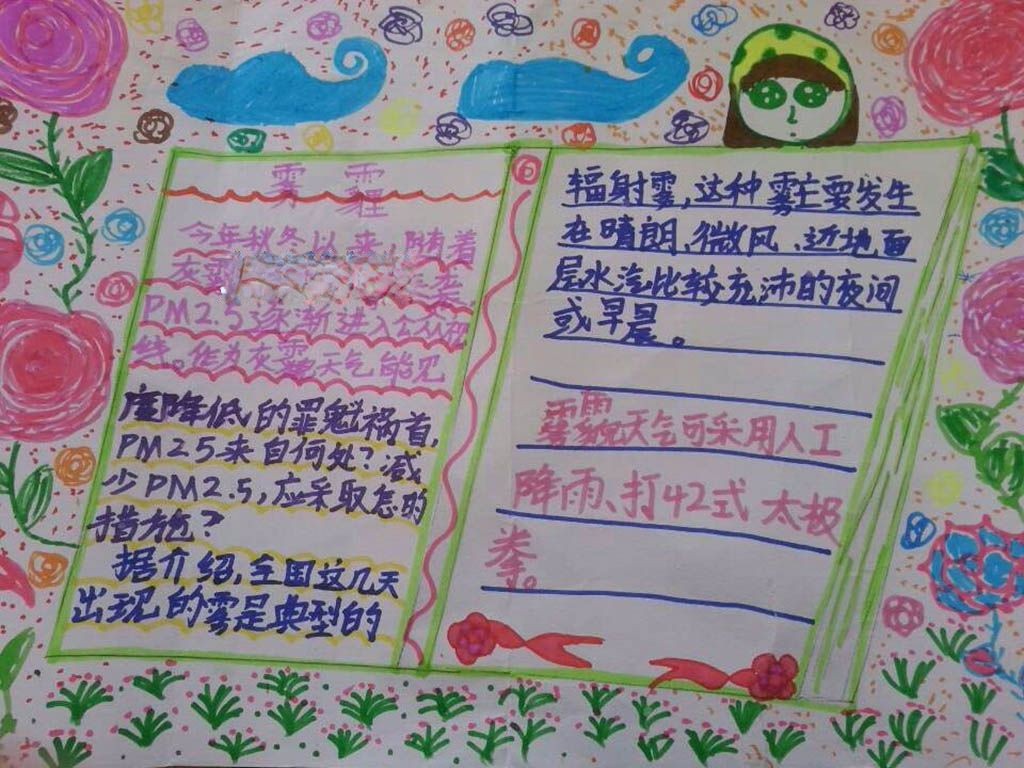 雾霾
今年秋冬以来,随着
灰霾
PM2.5逐渐进入公众视
线。作为灰霾天气能见
度降低的罪魁祸首,
PM2.5来自何处?减
少PM2.5,应采取怎的
措施?
据介绍,全国这几天
出现的雾是典型的
辐射雾,这种雾主要发生
在晴朗、微风、近地面
层水汽比较充沛的夜间
或早晨。
雾霾天气可采用人工
降雨、打42式太极
拳。